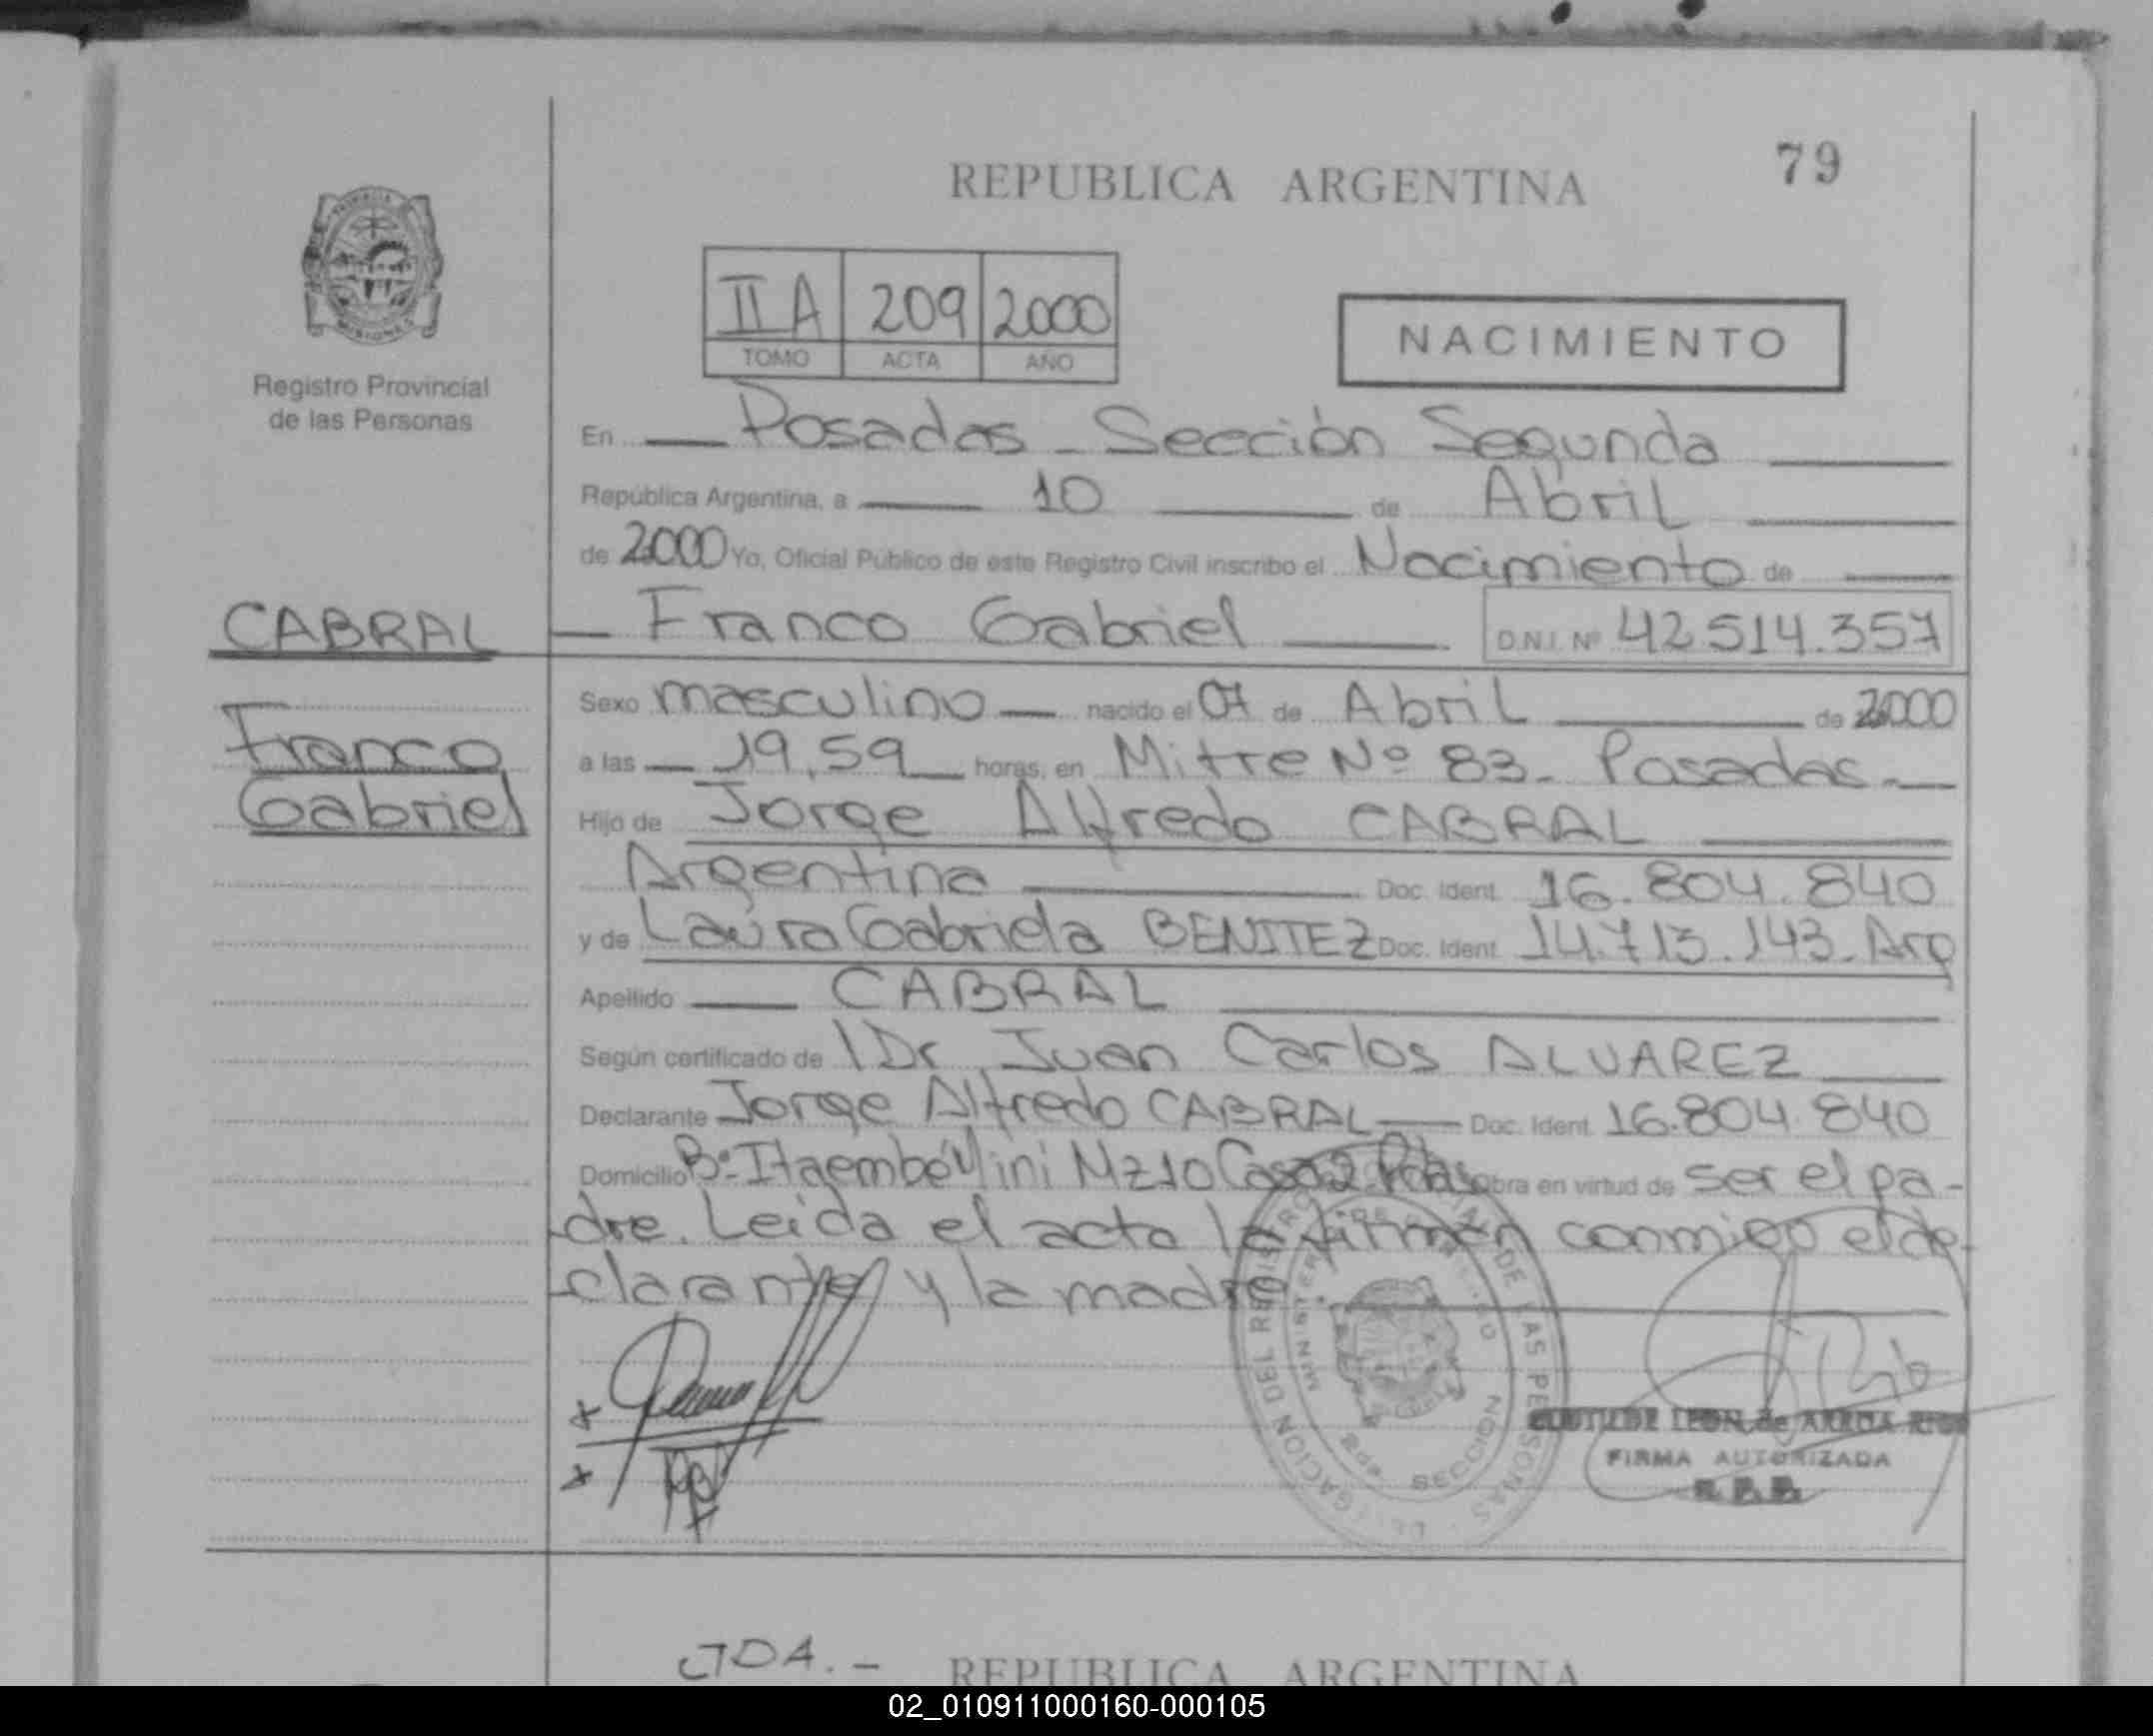 79
REPUBLICA ARGENTINA
II A 209 2000
TOMO ACTA AÑO
NACIMIENTO
Registro Provincial
de las Personas
En Posadas - Sección Segunda
República Argentina, a 10 de Abril
de 2000 Yo, Oficial Público de este Registro Civil inscribo el Nacimiento de
CABRAL Franco Gabriel D.N.I. Nº 42.514.357
Sexo masculino nacido el 07 de Abril de 2000
Franco
a las 19,59 horas, en Mitre Nº 83 - Posadas.-
Gabriel
Hijo de Jorge Alfredo CABRAL
Argentina Doc. Ident. 16.804.840
y de Laura Gabriela BENITEZ Doc. Ident. 14.713.143. Arg
Apellido CABRAL
Según certificado de Dr. Juan Carlos ALVAREZ
Declarante Jorge Alfredo CABRAL Doc. Ident. 16.804.840
Domicilio Bº Itaembé Mini Mz 10 Casa 2 Pdas Obra en virtud de ser el pa-
dre. Leida el acta la firman conmigo el de-
clarante y la madre.
DELEGACION DEL REGISTRO DE LAS PERSONAS
SECCION
FIRMA AUTORIZADA
REPUBLICA ARGENTINA
02_010911000160-000105